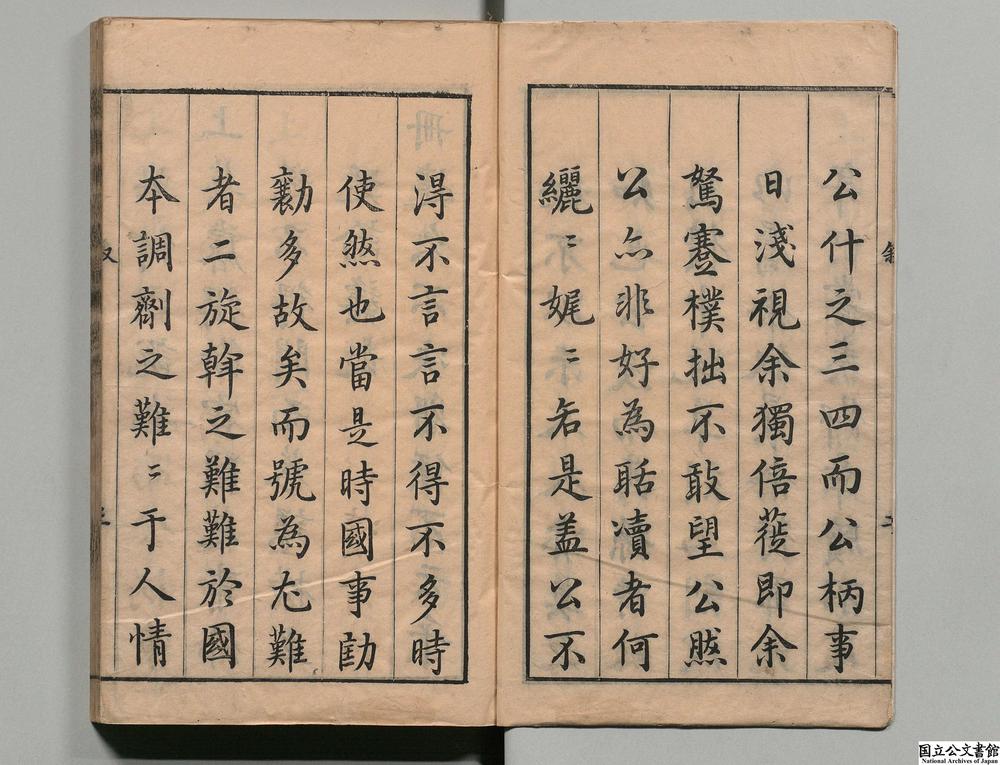 公什之三四而公柄事
日淺視余獨倍蓰即余
駑蹇樸拙不敢望公然
公亦非好為聒瀆者何
纚〻不娓〻若是盖公不
淂不言言不得不多時
使然也當是時國事勷
勷多故矣而號為尤難
者二旋斡之難難於國
本調劑之難〻于人情
国立公文書館
National Archives of Japan